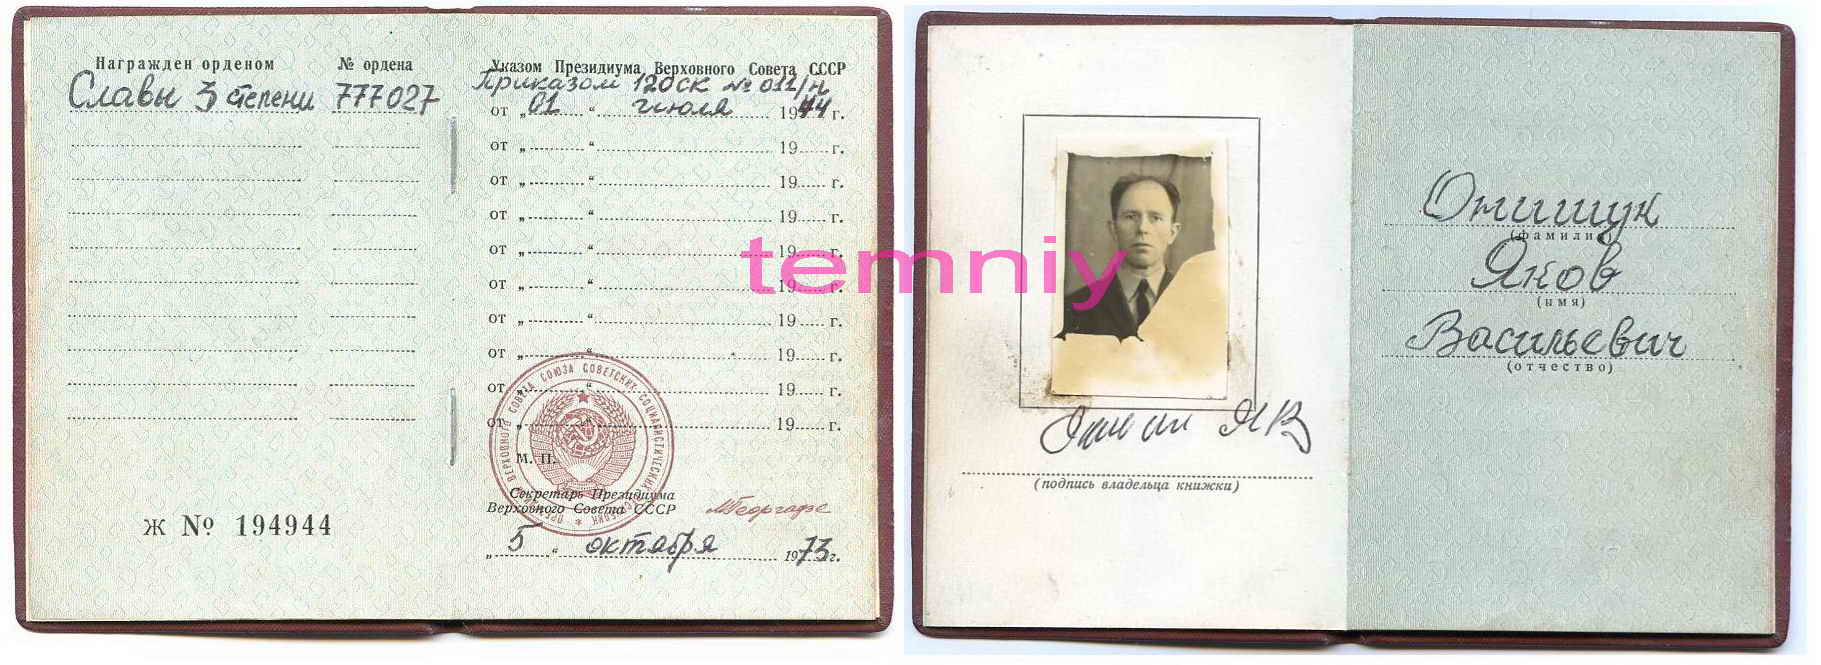 Награжден орденом № ордена
Славы 3 степени 777027
Указом Президиума Верховного Совета СССР
Приказом 120 ск № 011/н
от „ 01 “ июля 1944 г.
от „ “ 19 г.
от „ “ 19 г.
от „ “ 19 г.
от „ “ 19 г.
от „ “ 19 г.
от „ “ 19 г.
от „ “ 19 г.
от „ “ 19 г.
от „ “ 19 г.
М. П.
Секретарь Президиума
Верховного Совета СССР
М Георгадзе
„ 5 “ октября 1973 г.
Ж № 194944
ПРЕЗИДИУМ ВЕРХОВНОГО СОВЕТА СОЮЗА СОВЕТСКИХ СОЦИАЛИСТИЧЕСКИХ РЕСПУБЛИК
temniy
(подпись владельца книжки)
Онищук
(фамилия)
Яков
(имя)
Васильевич
(отчество)